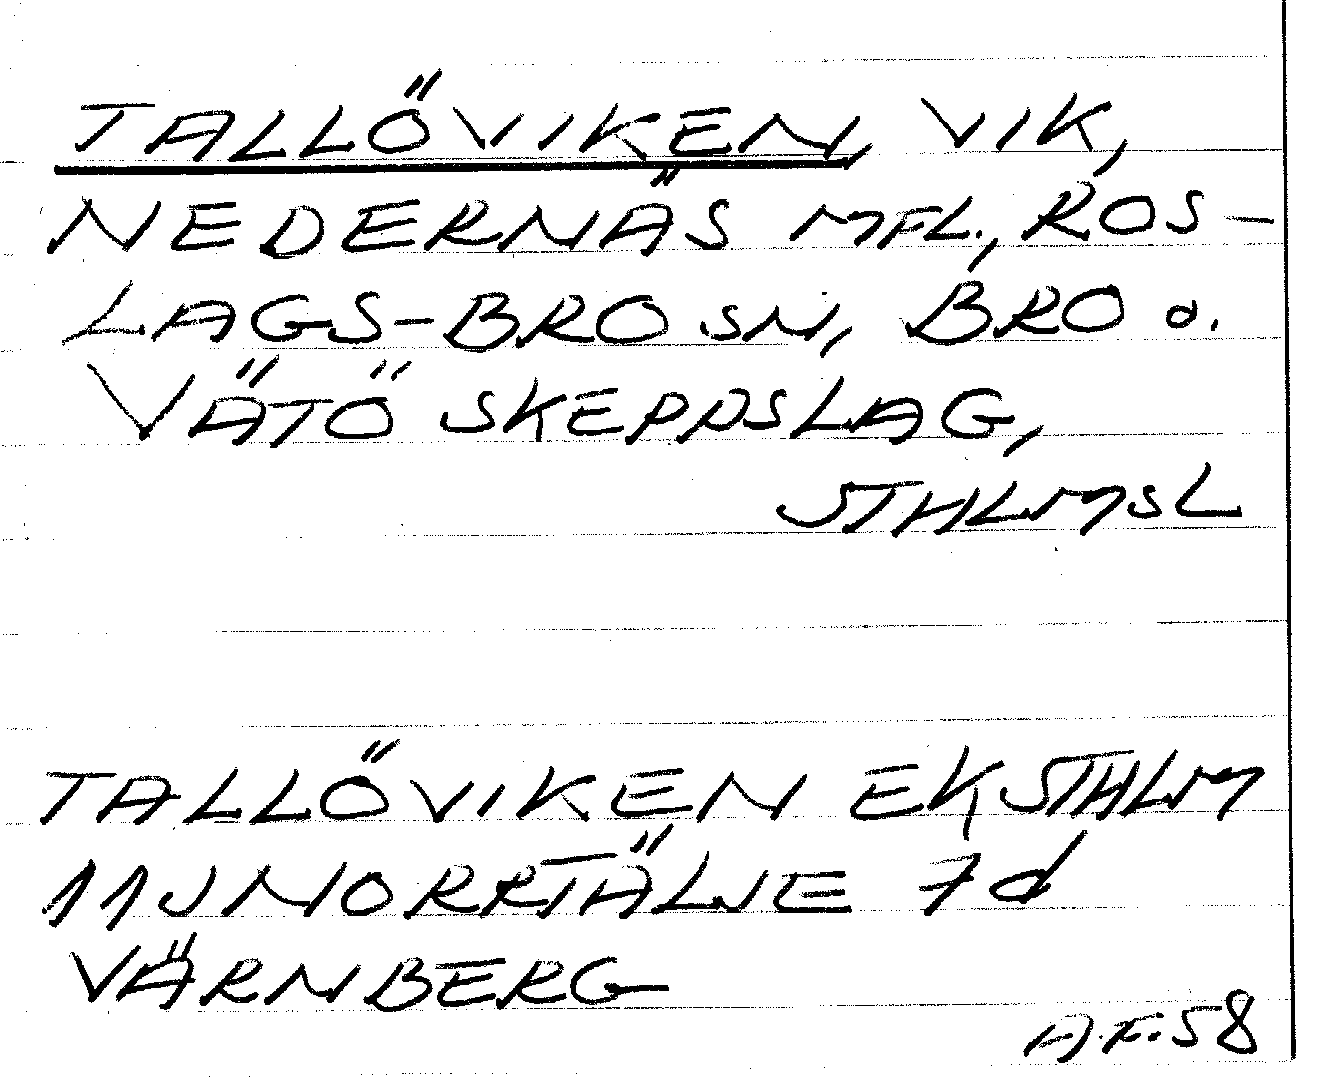 TALLÖVIKEN, VIK,
NEDERNÄS MFL., ROS-
LAGS-BRO SN, BRO o.
VÄTÖ SKEPPSLAG,
STHLMSL
TALLÖVIKEN EKSTHLM
11J NORRTÄLJE 7d
VÄRNBERG
A.F. 58